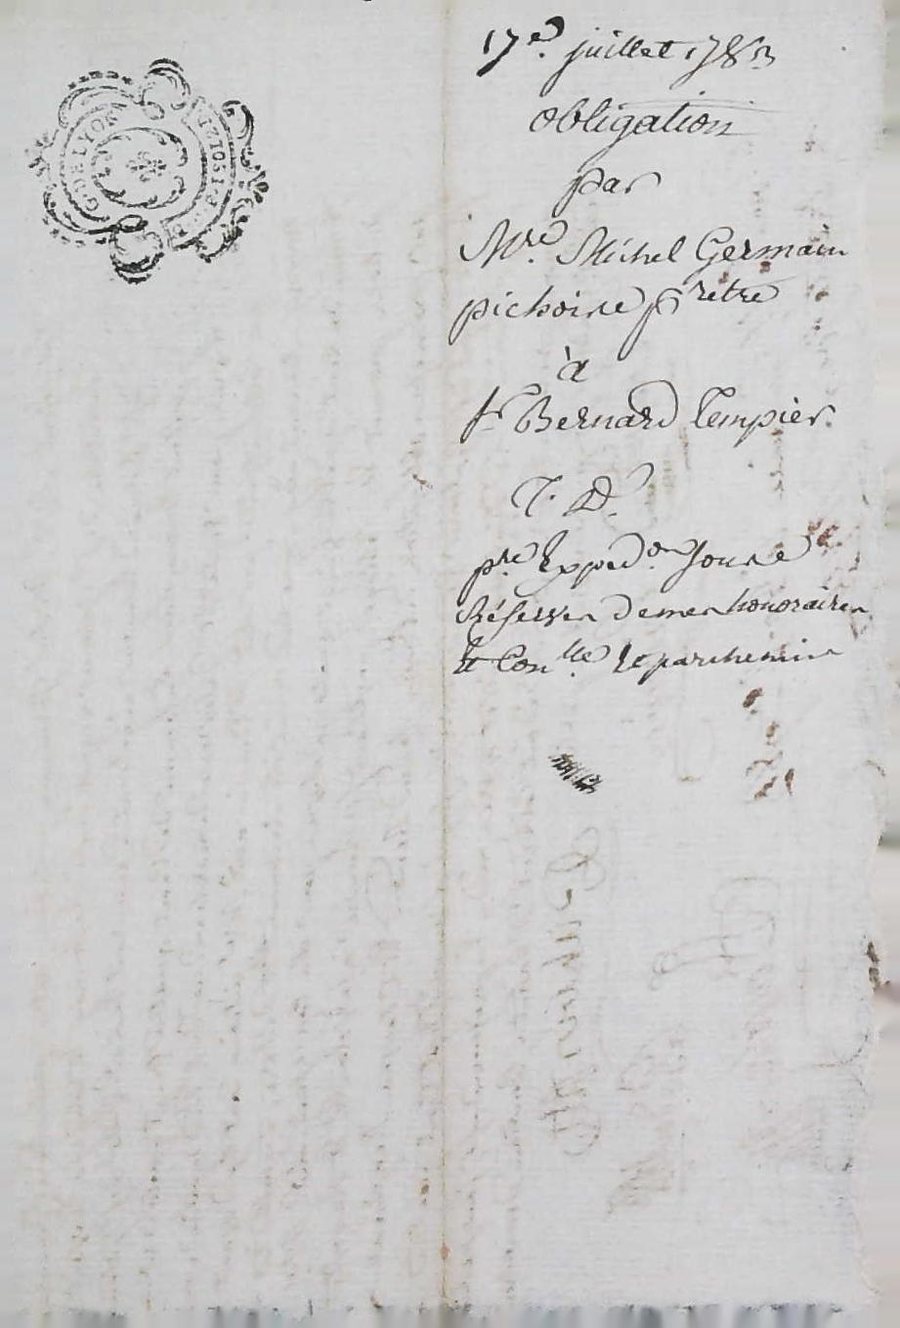 17e. juillet 1783
obligation
par
Mre. Michel Germain
pichoire prêtre
à
sr Bernard Tempier
T. D.
pre. Expedon
Réserver de mes honoraires
et Conlle. le parchemin
G DE LYON